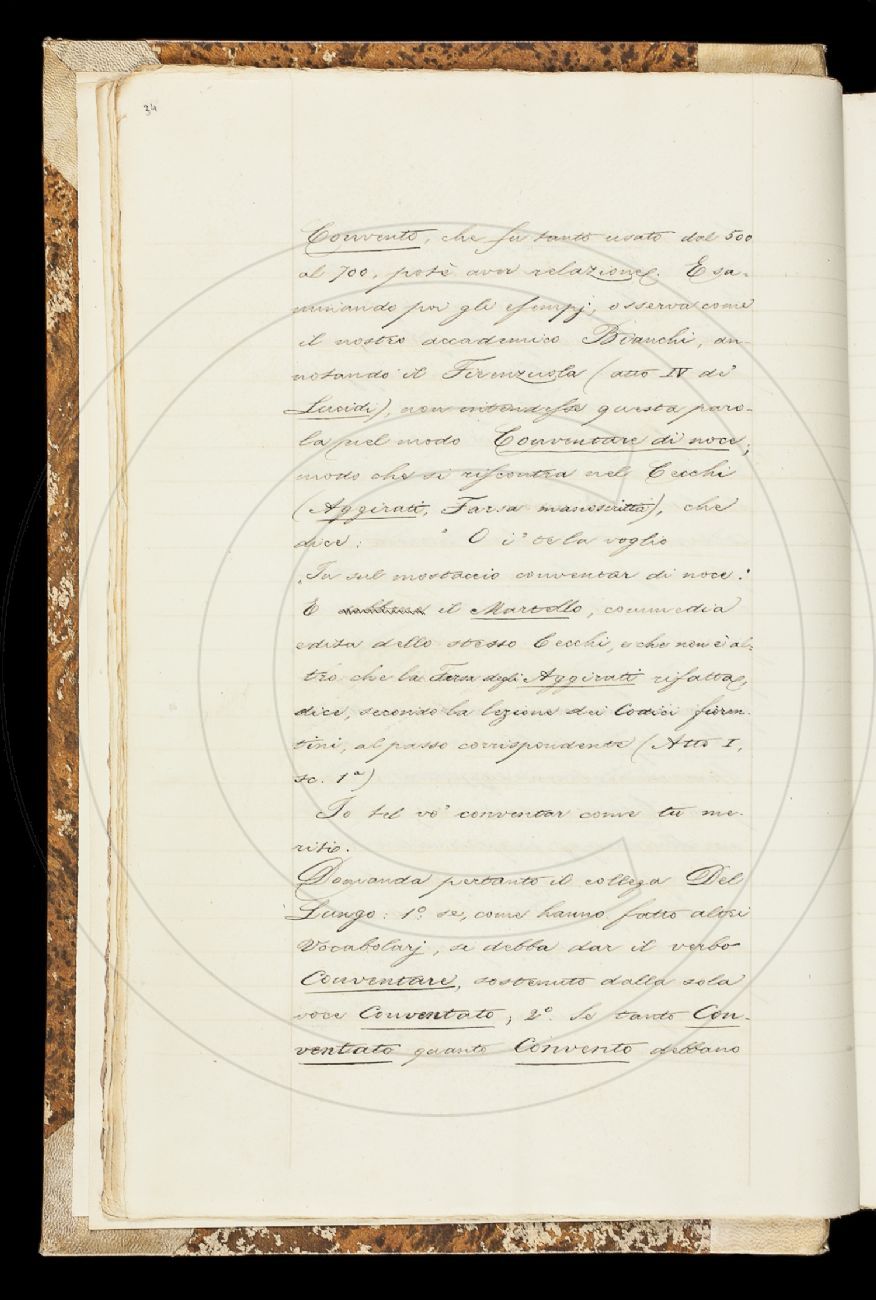 34
Convento, che fu tanto usato dal 500
al 700, potè aver relazione. Esa-
minando poi gli esempj, osserva come
il nostro accademico Bianchi, an-
notando il Firenzuola (atto IV de'
Lucidi), non intendesse questa paro-
la nel modo Conventare di noce;
modo che si riscontra nel Cecchi
(Aggirati, Farsa manoscritta), che
dice: " O i' te la voglio
"Tu sul mostaccio conventar di noce."
E il Martello, commedia
edita dello stesso Cecchi, e che non è al-
tro che la Farsa degli Aggirati rifatta,
dice, secondo la lezione dei Codici fioren-
tini, al passo corrispondente (Atto I,
sc. 1a)
Io tel vo' conventar come tu me-
riti.
Domanda pertanto il collega Del
Lungo: 1o. se, come hanno fatto altri
Vocabolarj, si debba dar il verbo
Conventare, sostenuto dalla sola
voce Conventato; 2o. Se tanto Con-
ventato quanto Convento debbano